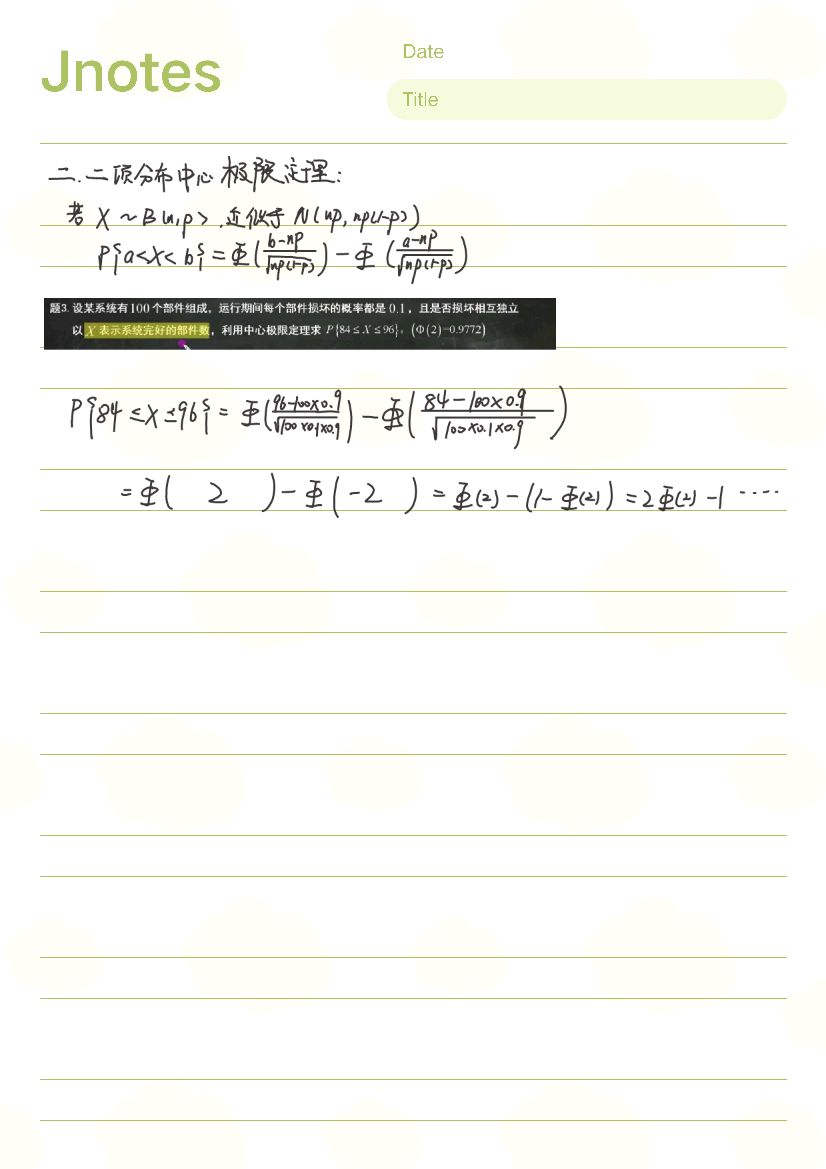 Jnotes
Date
Title
二.二项分布中心极限定理:
若 X ~ B(n,p>.近似于 N(np, np(1-p))
P{a<X<b}=Φ((b-np)/√(np(1-p)))-Φ((a-np)/√(np(1-p)))
题3. 设某系统有100个部件组成，运行期间每个部件损坏的概率都是0.1，且是否损坏相互独立
以 X 表示系统完好的部件数，利用中心极限定理求 P{84≤X≤96}。(Φ(2)=0.9772)
P{84≤X≤96}=Φ((96-100×0.9)/√(100×0.1×0.9))-Φ((84-100×0.9)/√(100×0.1×0.9))
=Φ( 2 )-Φ(-2 )=Φ(2)-(1-Φ(2))=2Φ(2)-1 ····